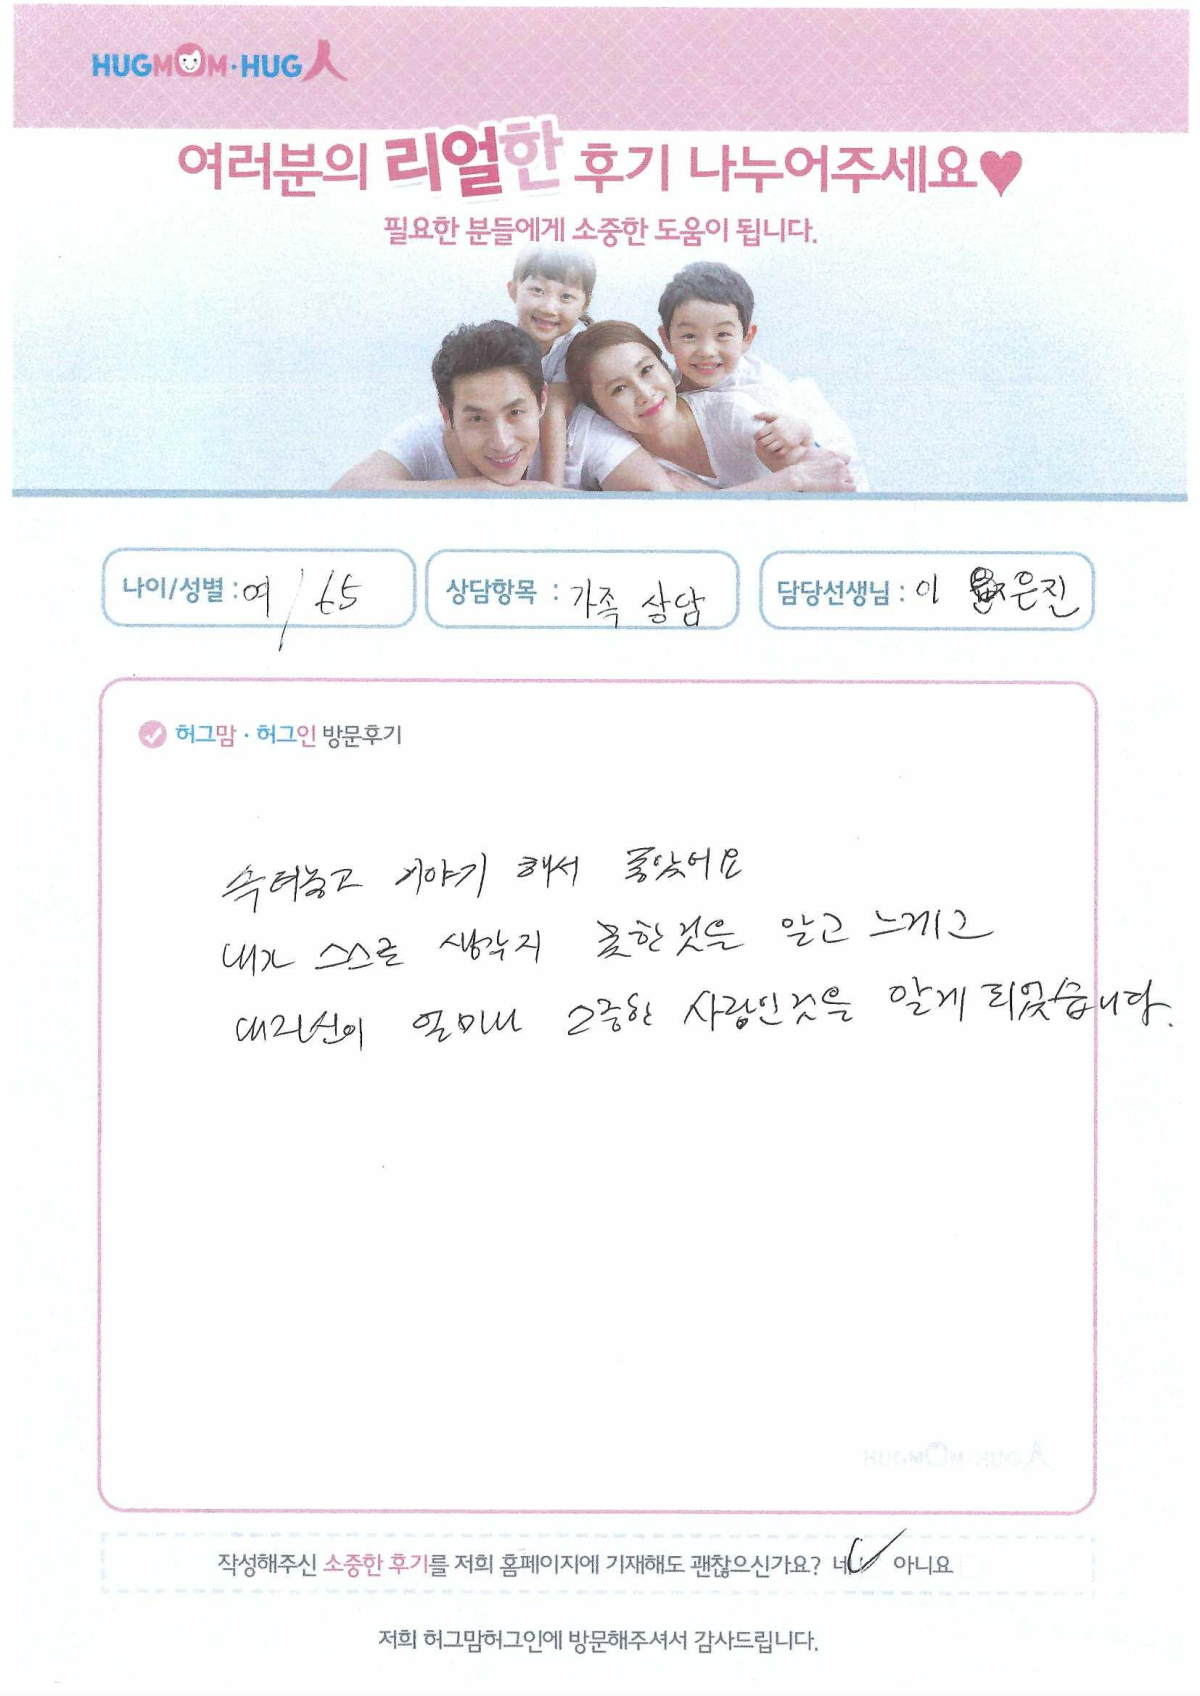 HUGMOM·HUG人
여러분의 리얼한 후기 나누어주세요♥
필요한 분들에게 소중한 도움이 됩니다.
나이/성별 : 여 / 65
상담항목 : 가족 상담
담당선생님 : 이 은진
허그맘 · 허그인 방문후기
속터놓고 이야기 해서 좋았어요
내가 스스로 생각지 못한것을 알고 느끼고
내자신이 얼마나 소중한 사람인것을 알게 되었습니다.
작성해주신 소중한 후기를 저희 홈페이지에 기재해도 괜찮으신가요? 네 ✓ 아니요
저희 허그맘허그인에 방문해주셔서 감사드립니다.